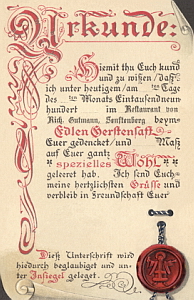 Urkunde:
Hiemit thu Euch kund
und zu wißen / daß
ich unter heutigem / am ten Tage
des ten Monats Eintausendneun-
hundert im Restaurant von
Rich. Gutmann, Senftenberg beym
Edlen Gerstensaft
Euer gedencket / und Maß
auf Euer gantz
spezielles Wohl
geleeret hab. Ich send Euch
meine hertzlichsten Grüße und
verbleib in Freundschaft Euer
Dieß Unterschrift wird
hiedurch beglaubiget und un-
ter Insiegel geleget.